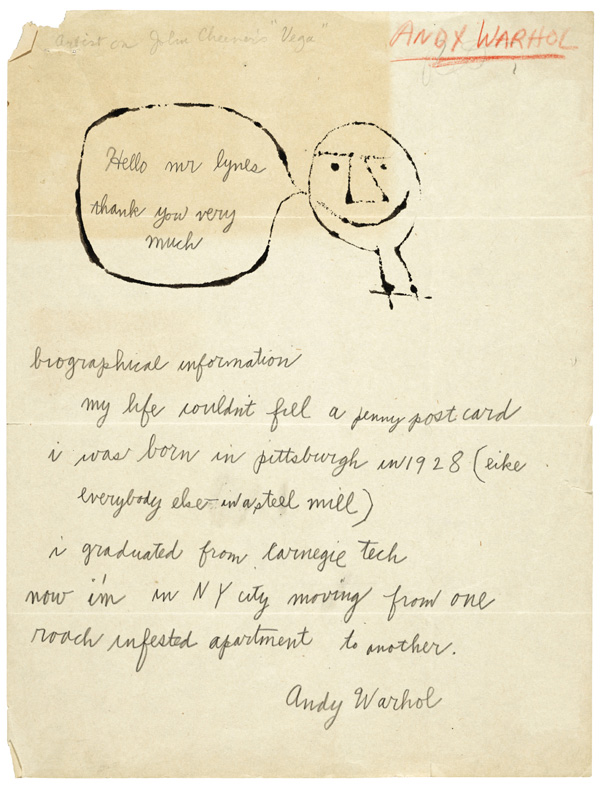 Artist on John Cheever's "Vega"
ANDY WARHOL
Hello mr lynes
thank you very
much
biographical information
my life couldn't fill a penny post card
i was born in pittsburgh in 1928 (like
everybody else - in a steel mill)
i graduated from carnegie tech
now i'm in NY city moving from one
roach infested apartment to another.
Andy Warhol